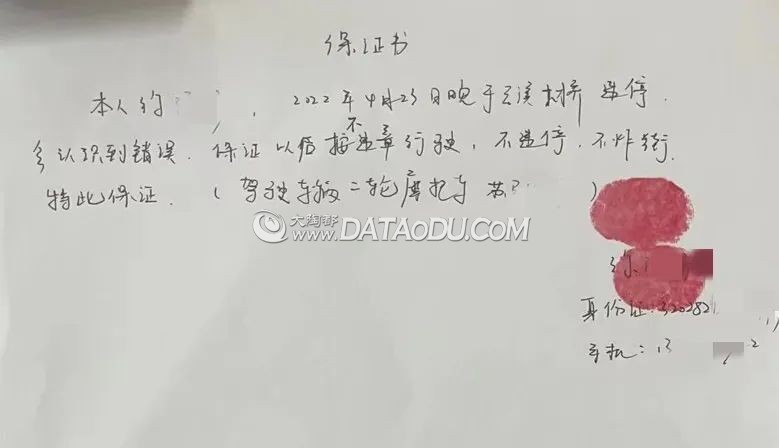 保证书
本人 , 2022年4月23日晚于 溪 桥 违停.
认识到错误. 保证以后不违章行驶, 不违停, 不炸街.
特此保证. (驾驶车辆二轮摩托车 苏 )
大淘都 WWW.DATAODU.COM
身份证:320282
手机:13 2